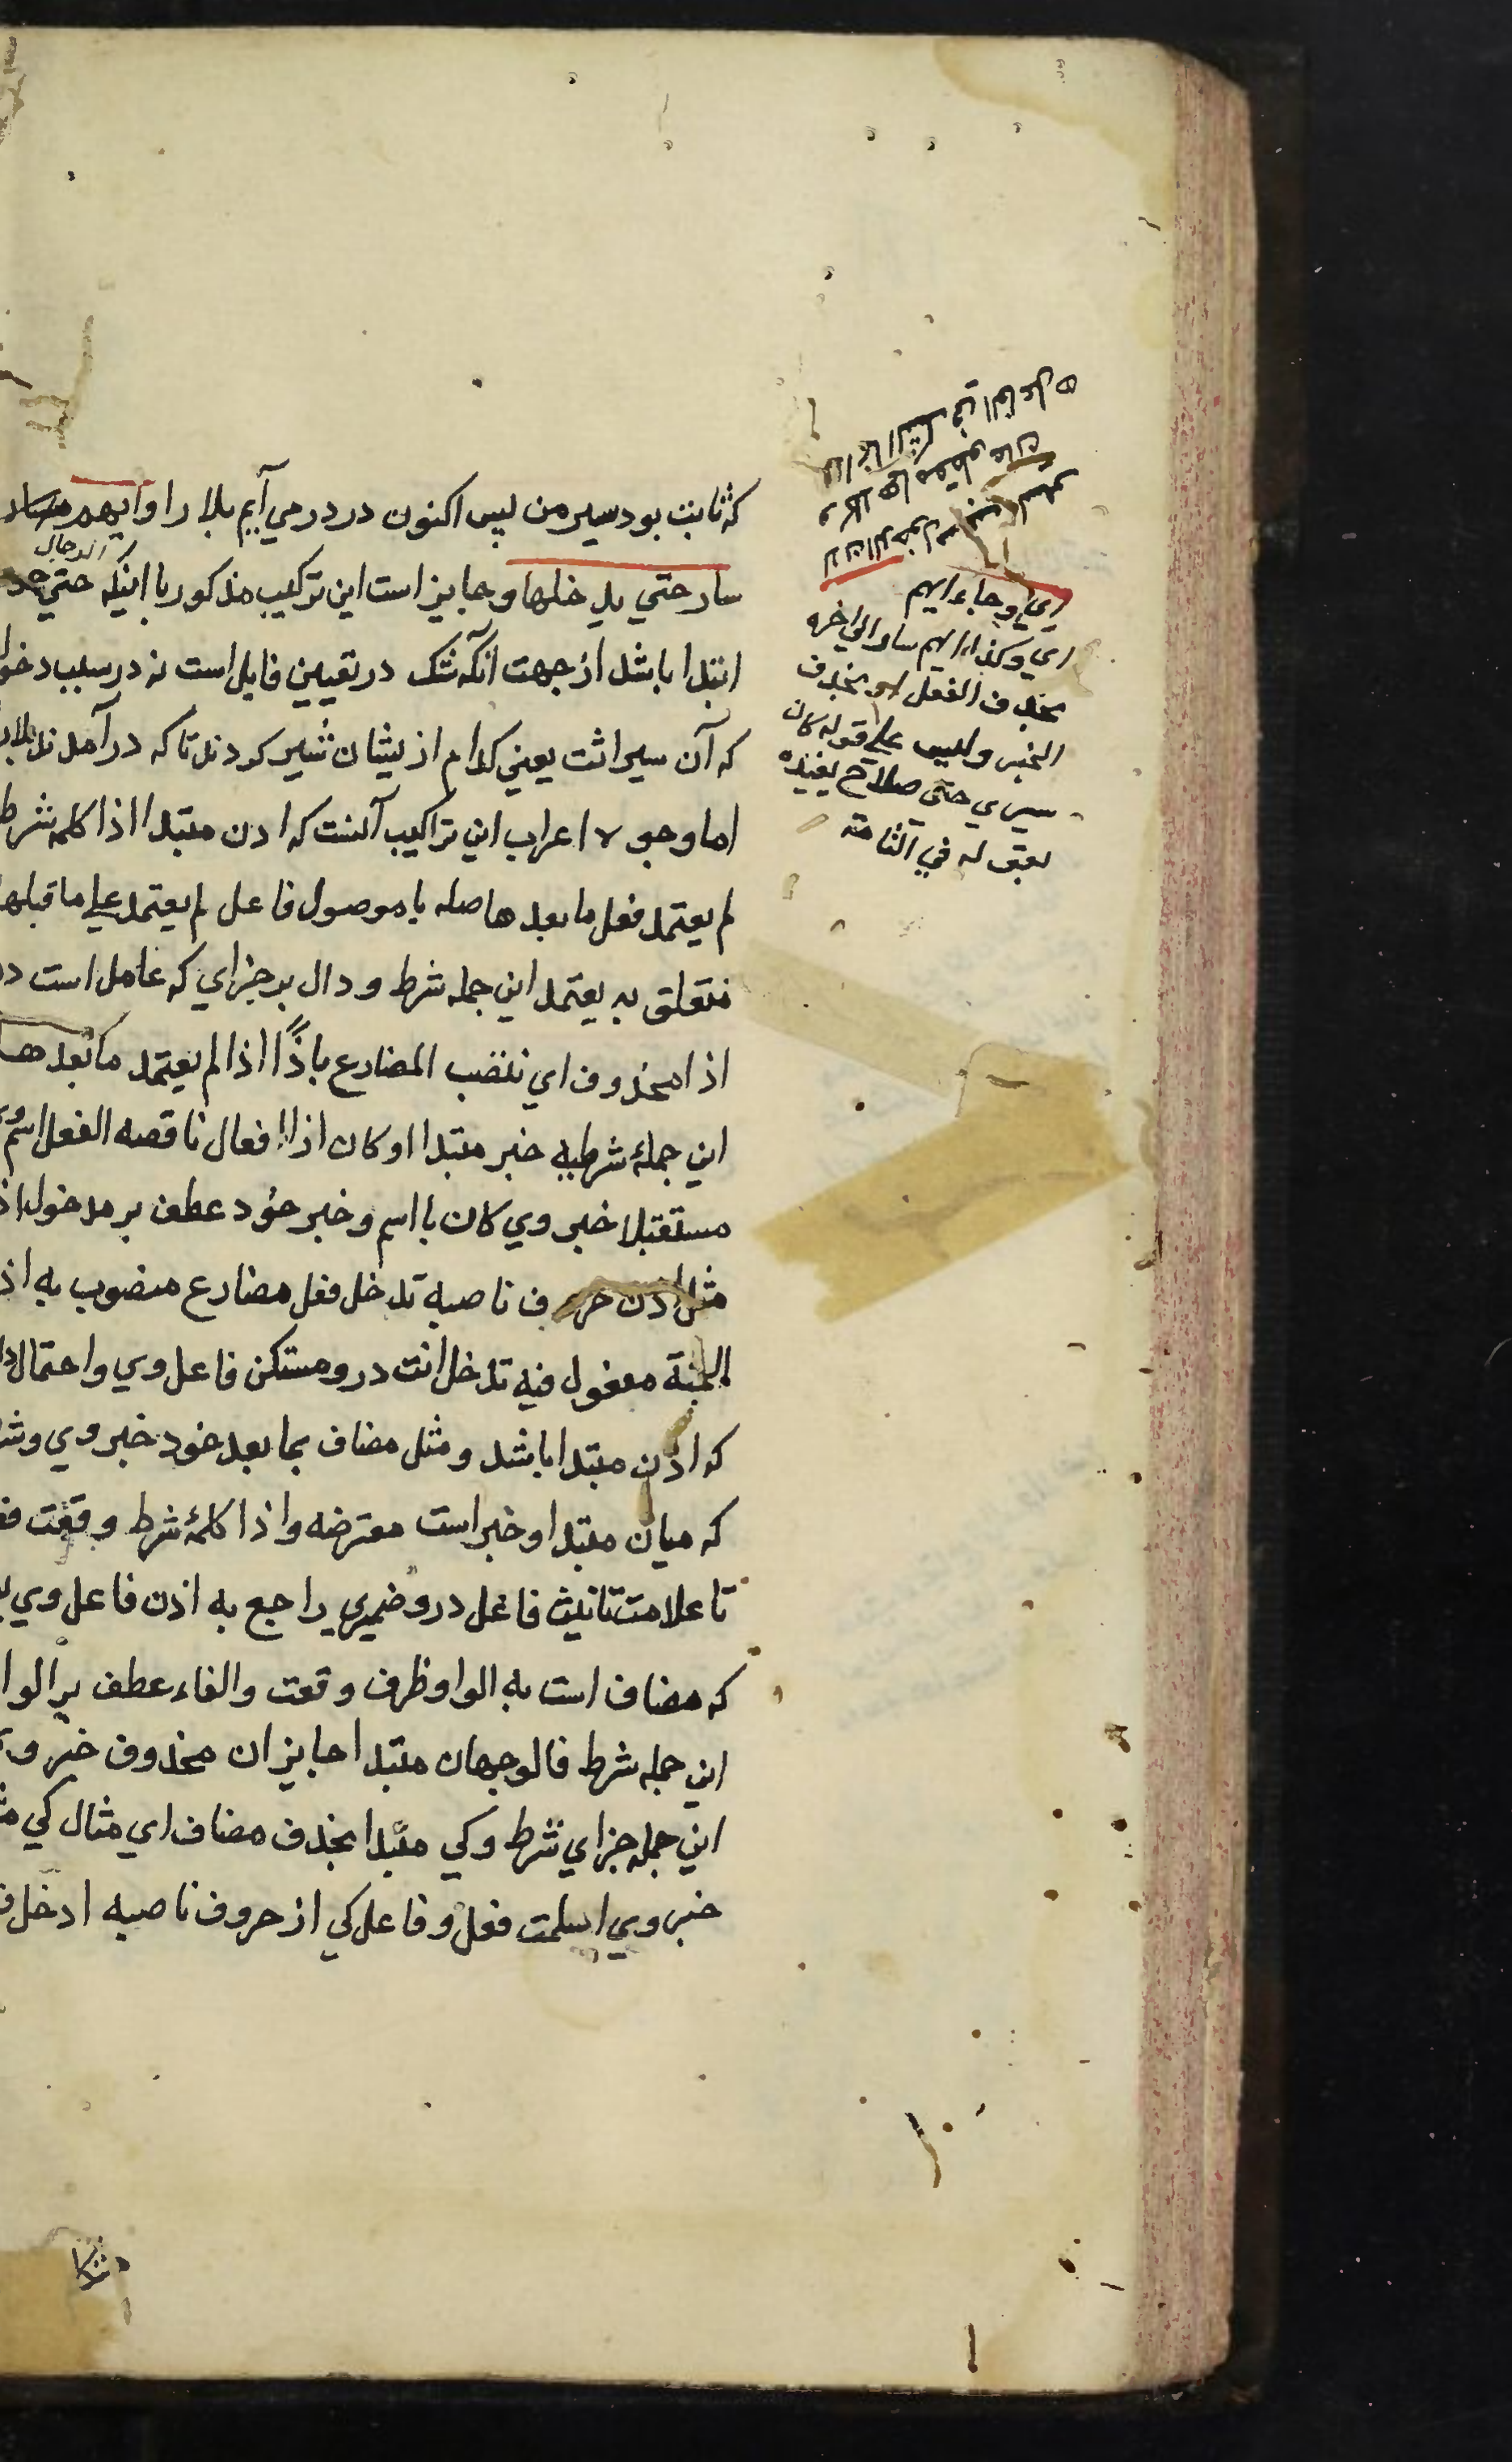 که ثابت بود سیر من پس اکنون در درمی آیم بلا را وایهم سار
الرجال
سار حتي يدخلها وجایز است این ترکیب مذکور با اینکه حتي
ابتدا باشد از جهت آنکه شک در تعیین فایل است نه در سبب دخول
که آن سیر اثت یعنی کدام از یشان سیر کردند تا که در آمدند بلا
اما وجوه اعراب این تراکیب آنست که اذن مبتدا اذا کلمه شرط
لم یعتمد فعل ما بعدها صله یا موصول فاعل لم یعتمد علی ما قبلها
متعلق به یعتمد این جمله شرط و دال بر جزای که عامل است در
اذا محذوف ای ننصب المضارع باذًا اذا لم یعتمد ما بعدها
این جملهٔ شرطیه خبر مبتدا او کان اذا افعال ناقصه الفعل اسم وی
مستقبلا خبر وي کان با اسم و خبر خود عطف بر مدخول اذ
مثل اذن حروف ناصبه تدخل فعل مضارع منصوب به اذ
الجنة مفعول فیه تدخل انت درو مستکن فاعل وي واحتمال دا
که اذن مبتدا باشد و مثل مضاف بما بعد خود خبر وي وش
که میان مبتدا و خبر است معترضه و اذا کلمهٔ شرط وقعت فع
تا علامت تانیث فاعل درو ضمیري راجع به اذن فاعل وي
که مضاف است به الواو ظرف وقعت والفاء عطف بر الوا
این جمله شرط فالوجهان مبتدا جایزان محذوف خبر و
این جمله جزاي شرط و کي مبتدا بحذف مضاف اي مثال کي
خبر وي اسلمت فعل و فاعل کي از حروف ناصبه ادخل
اي وجاء ايهم
اي وكذا ايهم سار الي اخره
بحذف الفعل او بحذف
الخبر وليس علي قوله كان
سيري حتي صلاح يفيده
بقوله في التامة
لان الدخول
وكلاهما
انما الشك في الفاعل